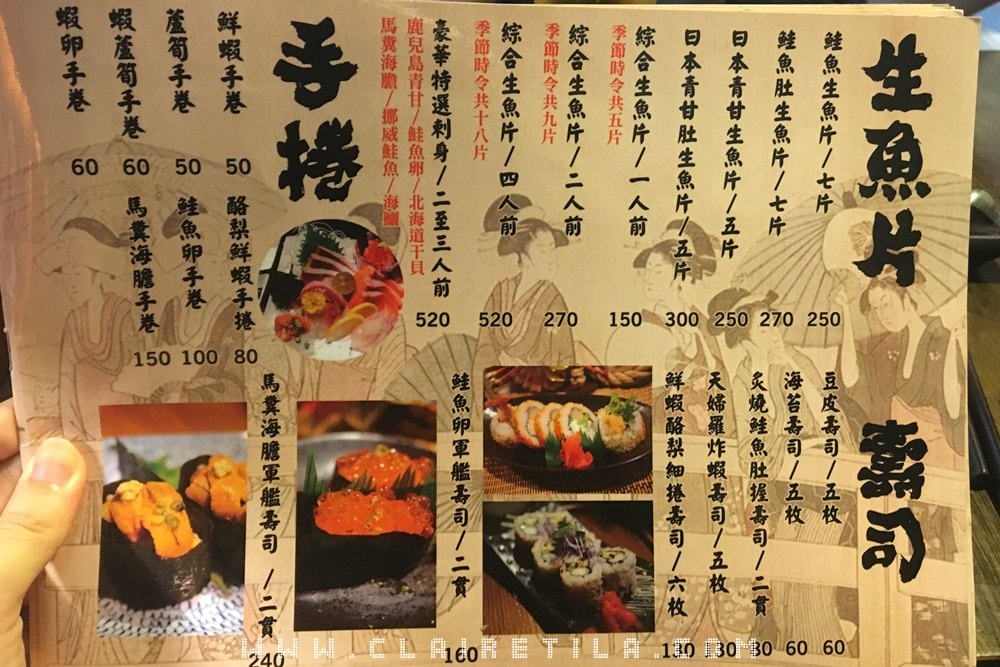 生魚片
鮭魚生魚片/七片
250
鮭魚肚生魚片/七片
270
日本青甘生魚片/五片
250
日本青甘肚生魚片/五片
300
綜合生魚片/一人前
季節時令共五片
150
綜合生魚片/二人前
季節時令共九片
270
綜合生魚片/四人前
季節時令共十八片
520
豪華特選刺身/二至三人前
鹿兒島青甘/鮭魚卵/北海道干貝
馬糞海膽/挪威鮭魚/海鱺
520
手捲
鮮蝦手卷
50
蘆筍手卷
50
蝦蘆筍手卷
60
蝦卵手卷
60
酪梨鮮蝦手捲
80
鮭魚卵手卷
100
馬糞海膽手卷
150
壽司
豆皮壽司/五枚
60
海苔壽司/五枚
60
炙燒鮭魚肚握壽司/二貫
80
天婦羅炸蝦壽司/五枚
130
鮮蝦酪梨細捲壽司/六枚
130
鮭魚卵軍艦壽司/二貫
160
馬糞海膽軍艦壽司/二貫
240
WWW.CLAIRETILA.COM